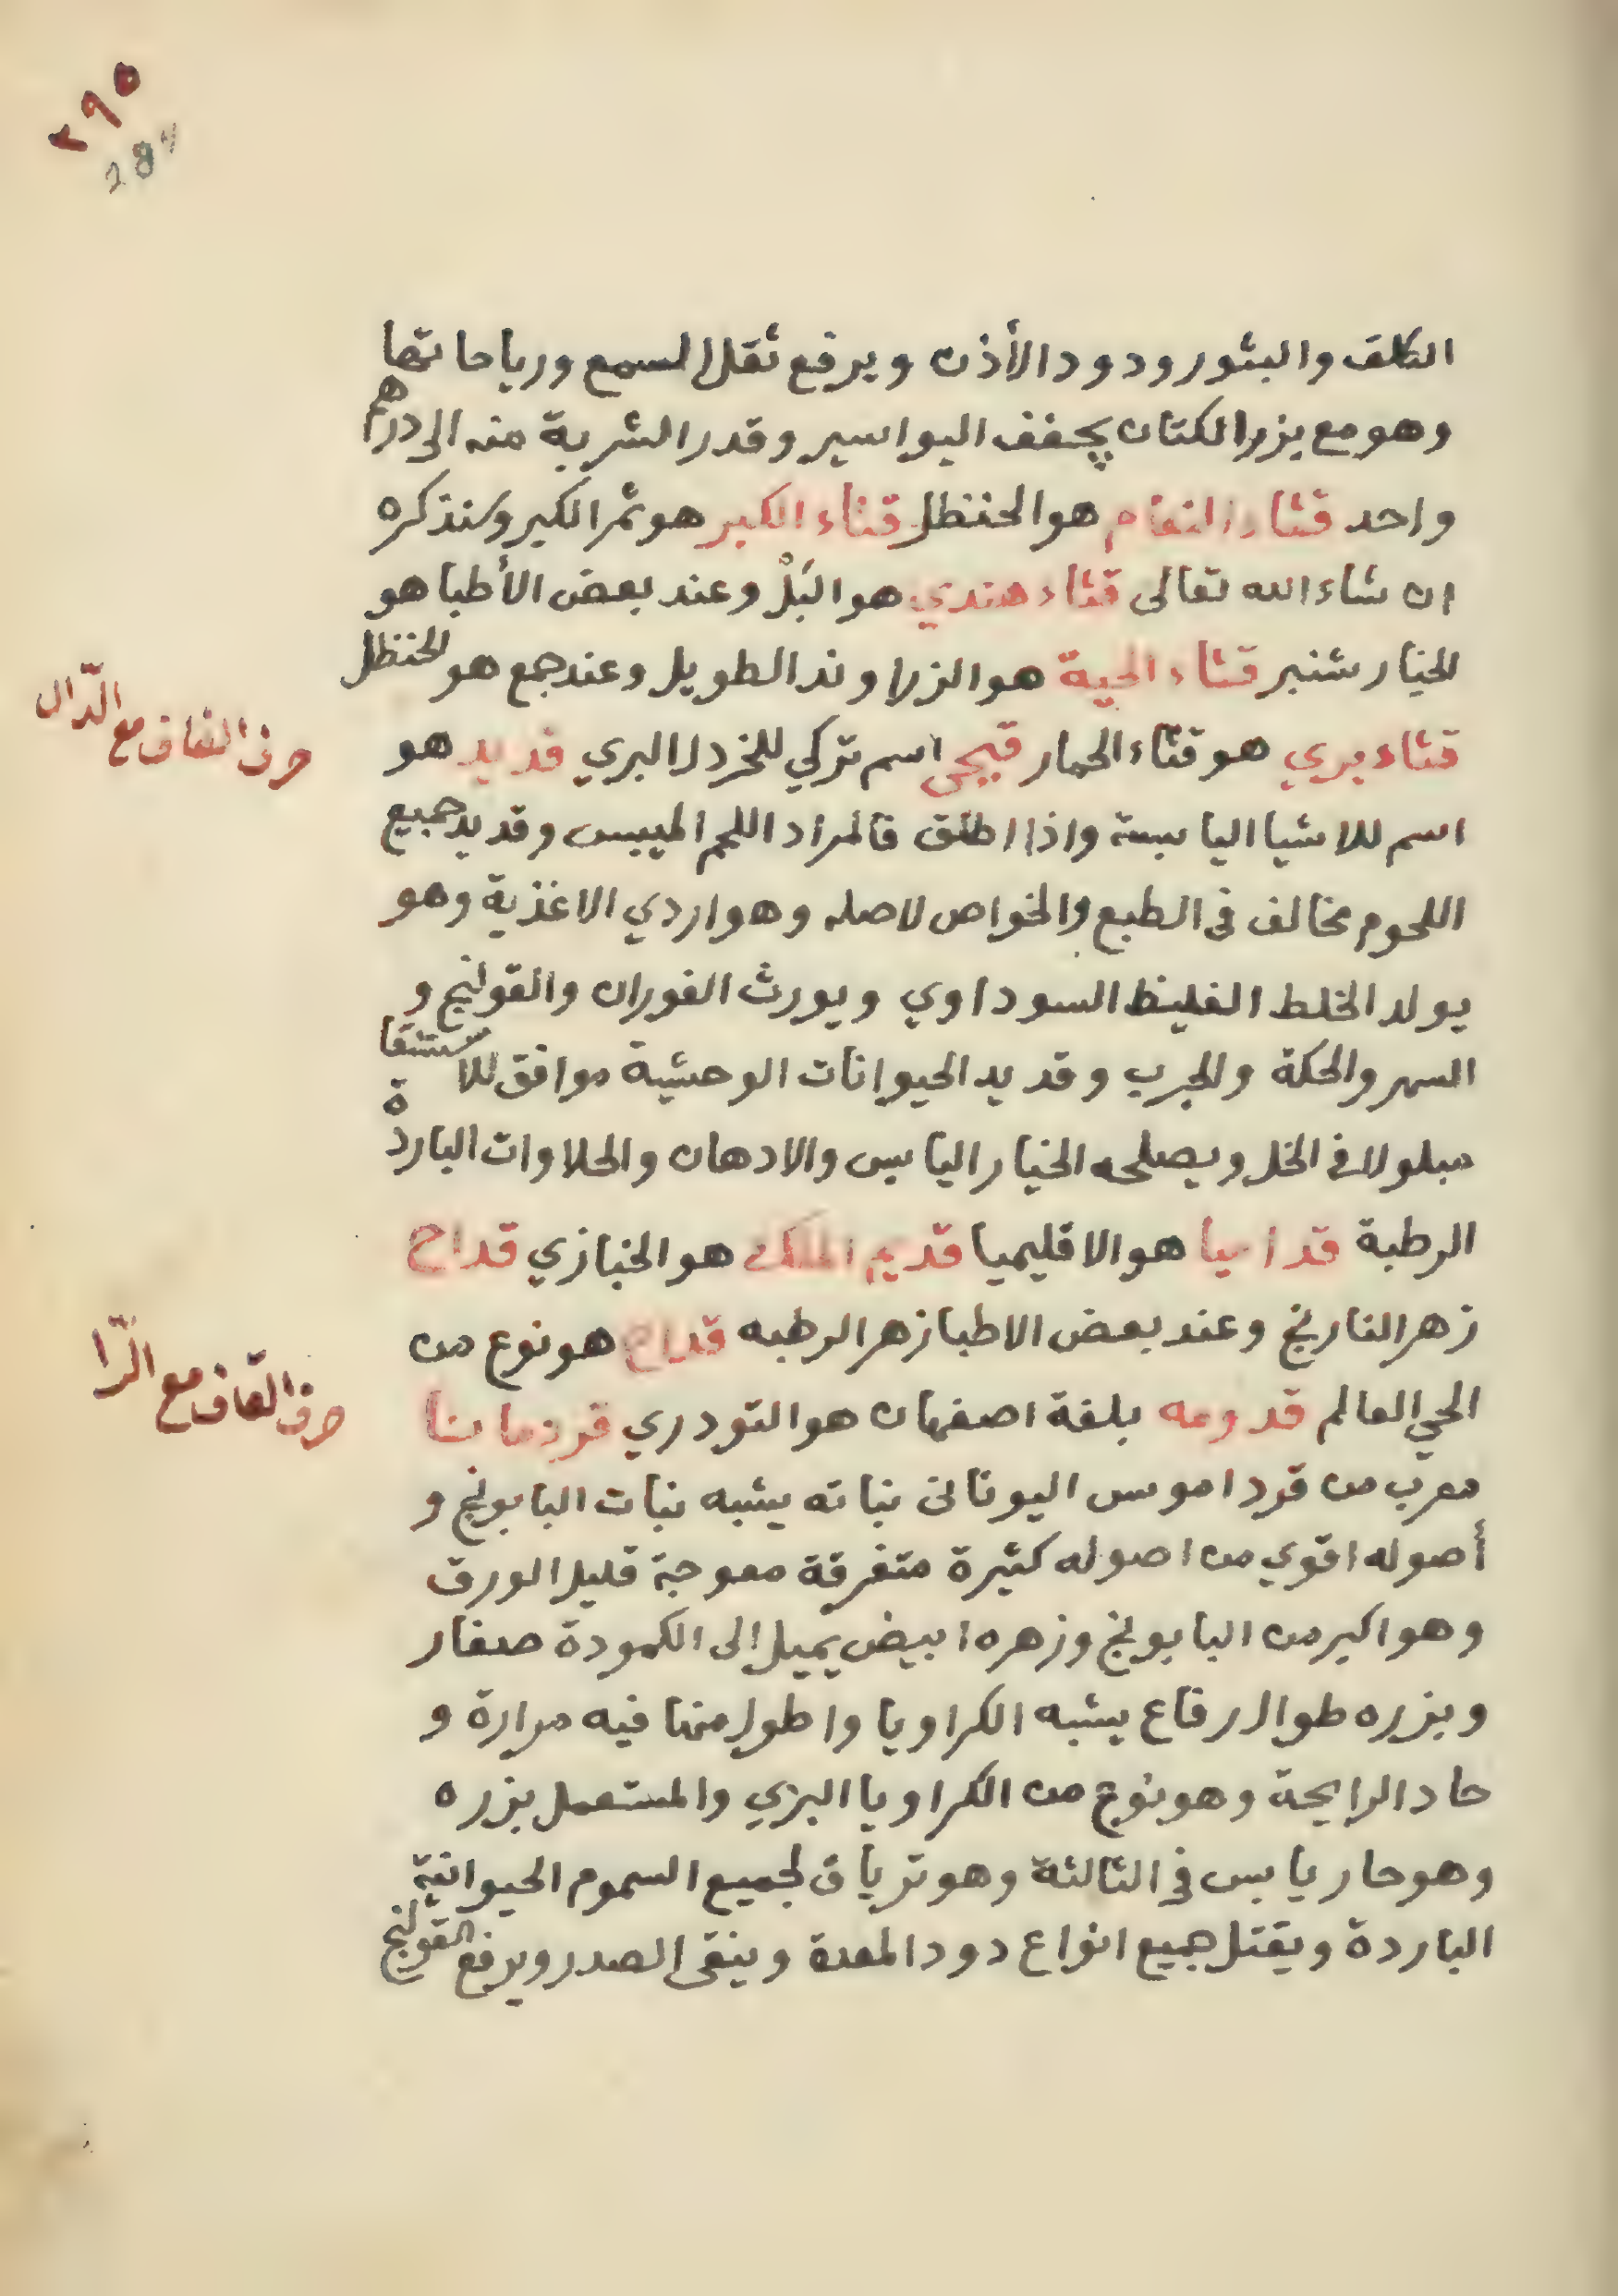 ٢٩٥
الكلف والبثور ودود الأذن ويرفع ثقل السمع ورياحاتها
وهو مع بزر الكتان يجفف البواسير وقدر الشربة منه الى درهم
واحد قثاء النعام هو الحنظل قثاء الكبر هو ثمر الكبر وسنذكره
ان شاء الله تعالى قثاء هندي هو البَلْ وعند بعض الأطبا هو
الخيار شنبر قثاء الحية هو الزراوند الطويل وعند جمع هو الحنظل
حرف القاف مع الدّال
قثاء بري هو قثاء الحمار قيجى اسم تركي للخردل البري قديد هو
اسم للاشيا اليابسة واذا اطلق فالمراد اللحم الميبس وقديد جميع
اللحوم مخالف فى الطبع والخواص لاصله وهو اردي الاغذية وهو
يولد الخلط الغليظ السوداوي ويورث الفوران والقولنج و
السهر والحكة والجرب وقديد الحيوانات الوحشية موافق للاستسقا
مبلولا فى الخل ويصلحه الخيار اليابس والادهان والحلاوات الباردة
الرطبة قداميا هو الاقليميا قديم الملك هو الخبازي قداح
زهر النارنج وعند بعض الاطبا زهر الرطبه قداح هو نوع من
حرف القاف مع الرّا
الحي العالم قدومه بلغة اصفهان هو التودري قردمانا
معرب من قرداموس اليونانى نباته يشبه نبات البابونج و
أصوله اقوي من اصوله كثيرة متفرقة معوجة قليل الورق
وهو اكبر من البابونج وزهره ابيض يميل الى الكمودة صغار
وبزره طوال رقاع يشبه الكراويا واطول منها فيه مرارة و
حاد الرايحة وهو نوع من الكراويا البري والمستعمل بزره
وهو حار يابس فى الثالثة وهو ترياق لجميع السموم الحيوانية
الباردة ويقتل جميع انواع دود المعدة وينقى الصدر ويرفع القولنج